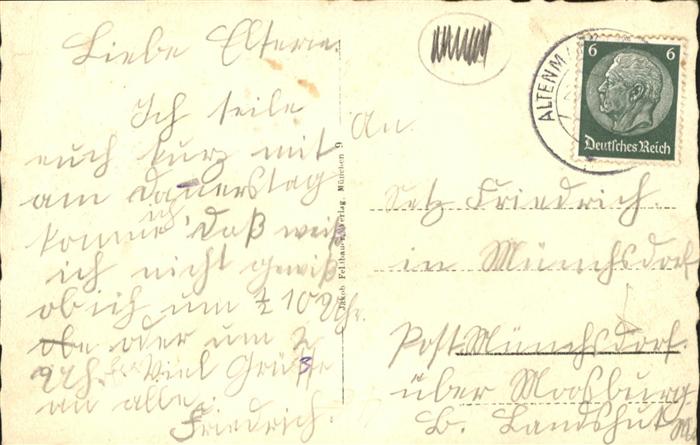 Liebe Eltern.
Ich teile
euch kurz mit
am Dauerstag
komme ich, daß weiß
ich nicht gewiß
ob ich um ½ 10 Uhr.
obe oder um
Uhr. Viel Grüße
an alle.
Friedrich.
Jakob Feldbauer, Verlag, München 9
ALTENM
6 6
Deutsches Reich
An.
Friedrich.
in Münchsdorf
Post Münchsdorf.
über Moosburg
B. Landshut